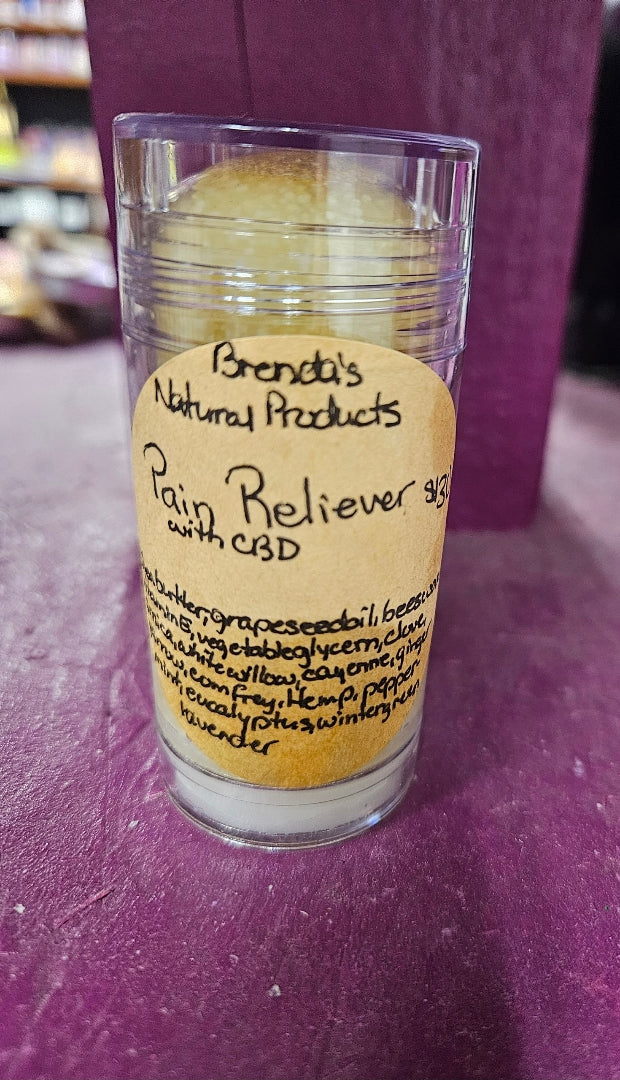 Brenda's
Natural Products
Pain Reliever
with CBD
butter, grapeseedoil, beeswax
vitaminE, vegetableglycern, clove,
arnica, whitewillow, cayenne, ginger
yarrow, comfrey, Hemp, pepper-
mint, eucalyptus, wintergreen
lavender